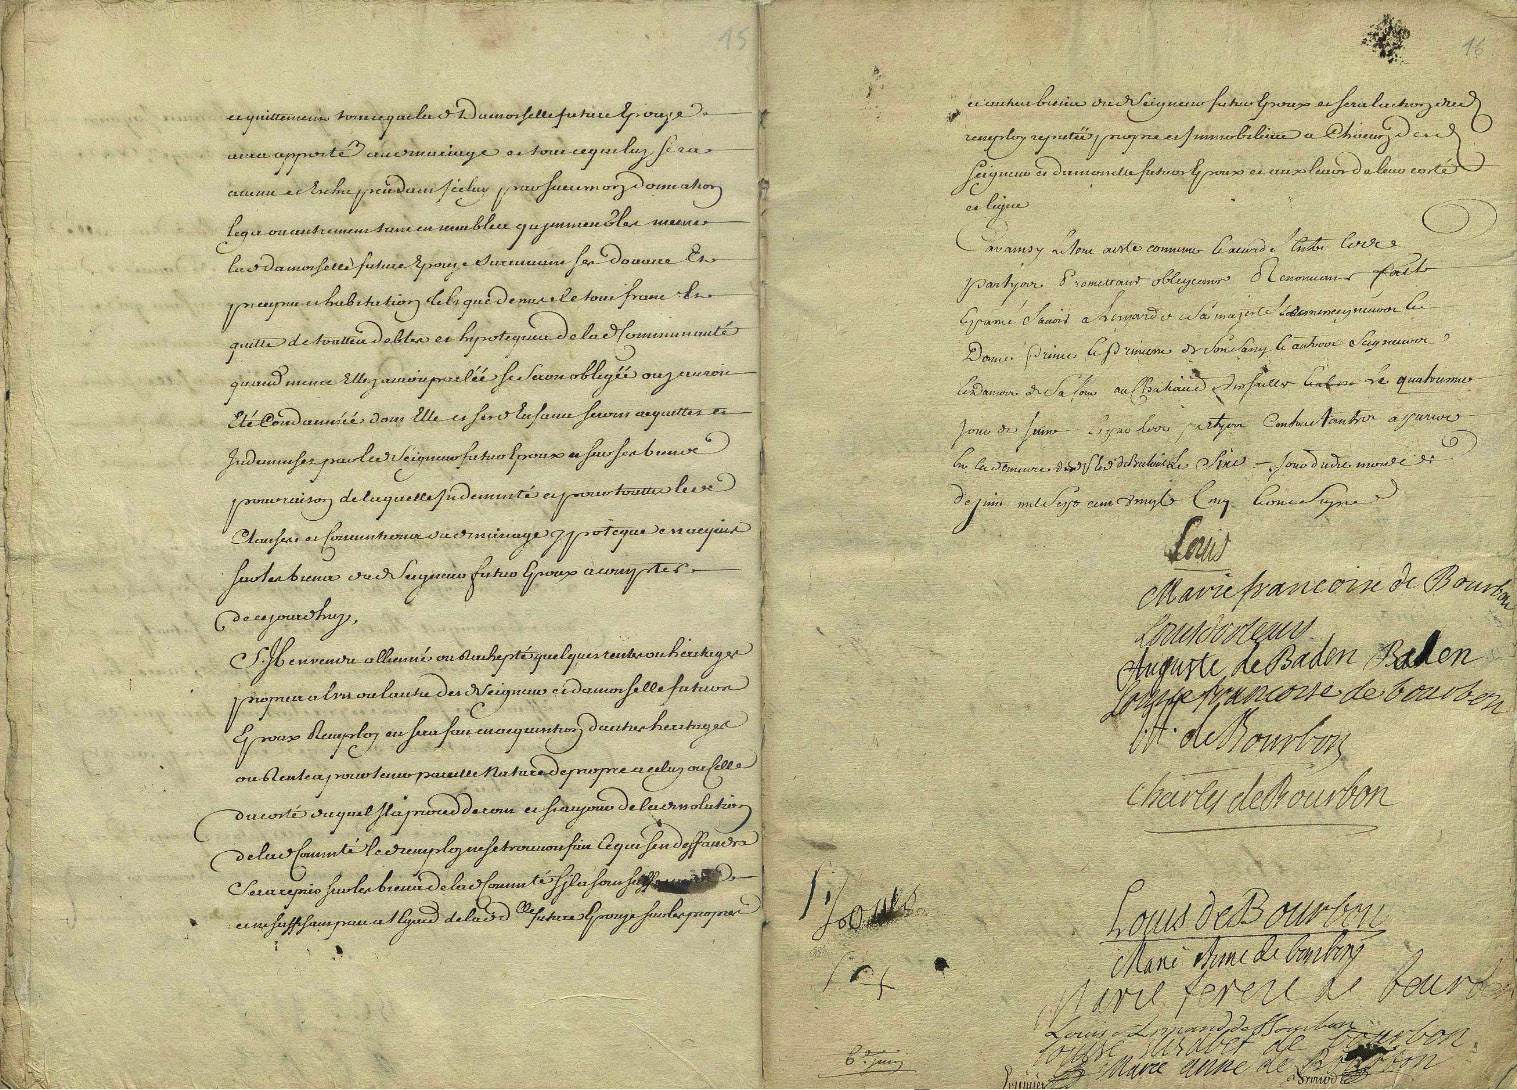 15
et quittement tout ce que lad. Damoiselle future Epouze
aura apporté aud mariage et tout ce qui luy sera
avenu et Echu pendant Iceluy par succession donation
legs ou autrement tant en meubles qu'immeubles mesme
lad damoiselle future Epouze survivant ses douaire Et
preciput et habitation tels que dessus le tout franc Et
quitte de touttes debtes et hypoteques de lad Communauté
quand mesme Elle y auroit parlée se seroit obligée ou y auroit
Eté Condamnée dont Elle et sesd Enfants seront acquittez et
Indemnisez par led Seigneur futur Epoux et sur ses biens
pour raison de laquelle Indemnité et pour touttes les
Clauses et Conventions dud mariage hypoteque est acquise
sur les biens dud Seigneur futur Epoux a compter
de ce jourdhuy,
S'Il est vendu allienné ou Racheptè quelques rentes ou héritages
propres a l'un ou l'autre desd Seigneur et damoiselle futurs
Epoux Remploy en sera fait en acquisition d'autres héritages
ou Rentes pour tenir pareille Nature de propre a celuy ou Celle
du costé duquel Il a procedé et si au jour de la dissolution
de lad Commté led remploy ne se trouvoit fait Ce qui s'en deffaudra
Sera repris sur les biens de lad Commté S'Ils sont
et ne suffisant pas a l'égard de lad dlle future Epouze sur les propres
16
et autres biens dud Seigneur futur Epoux et sera laction dud
remploy reputée propre et Immobiliaire a chacun desd
Seigneur et damoiselle futurs Epoux et aux leurs de leur costé
et ligne
Car ainsy Le tout a esté convenu et accordé Entre lesd
partyes Promettant obligeant Renonceant fait
Et passé Savoir a l'esgard de sa majesté
Princes et Princesses de son sang et autres Seigneurs
et dames de sa Cour au Chateau de Versailles Le quatriesme
jour de Juin Et par lesd partyes Contractantes a paris
En la demeure Le Six jour dudit mois de
de juin mil Sept cent Vingt Cinq Et ont Signé
Louis
Marie francoise de Bourbon
Louis dorleans
Auguste de Baden Baden
Louise francoise de bourbon
de Bourbon
Charles de Bourbon
Louis de Bourbon
Marie Anne de bourbon
Marie terese de bourbon
Louis Armand de Bourbon
Louise Elisabet de Bourbon
Marie anne de Bourbon
6e Juin